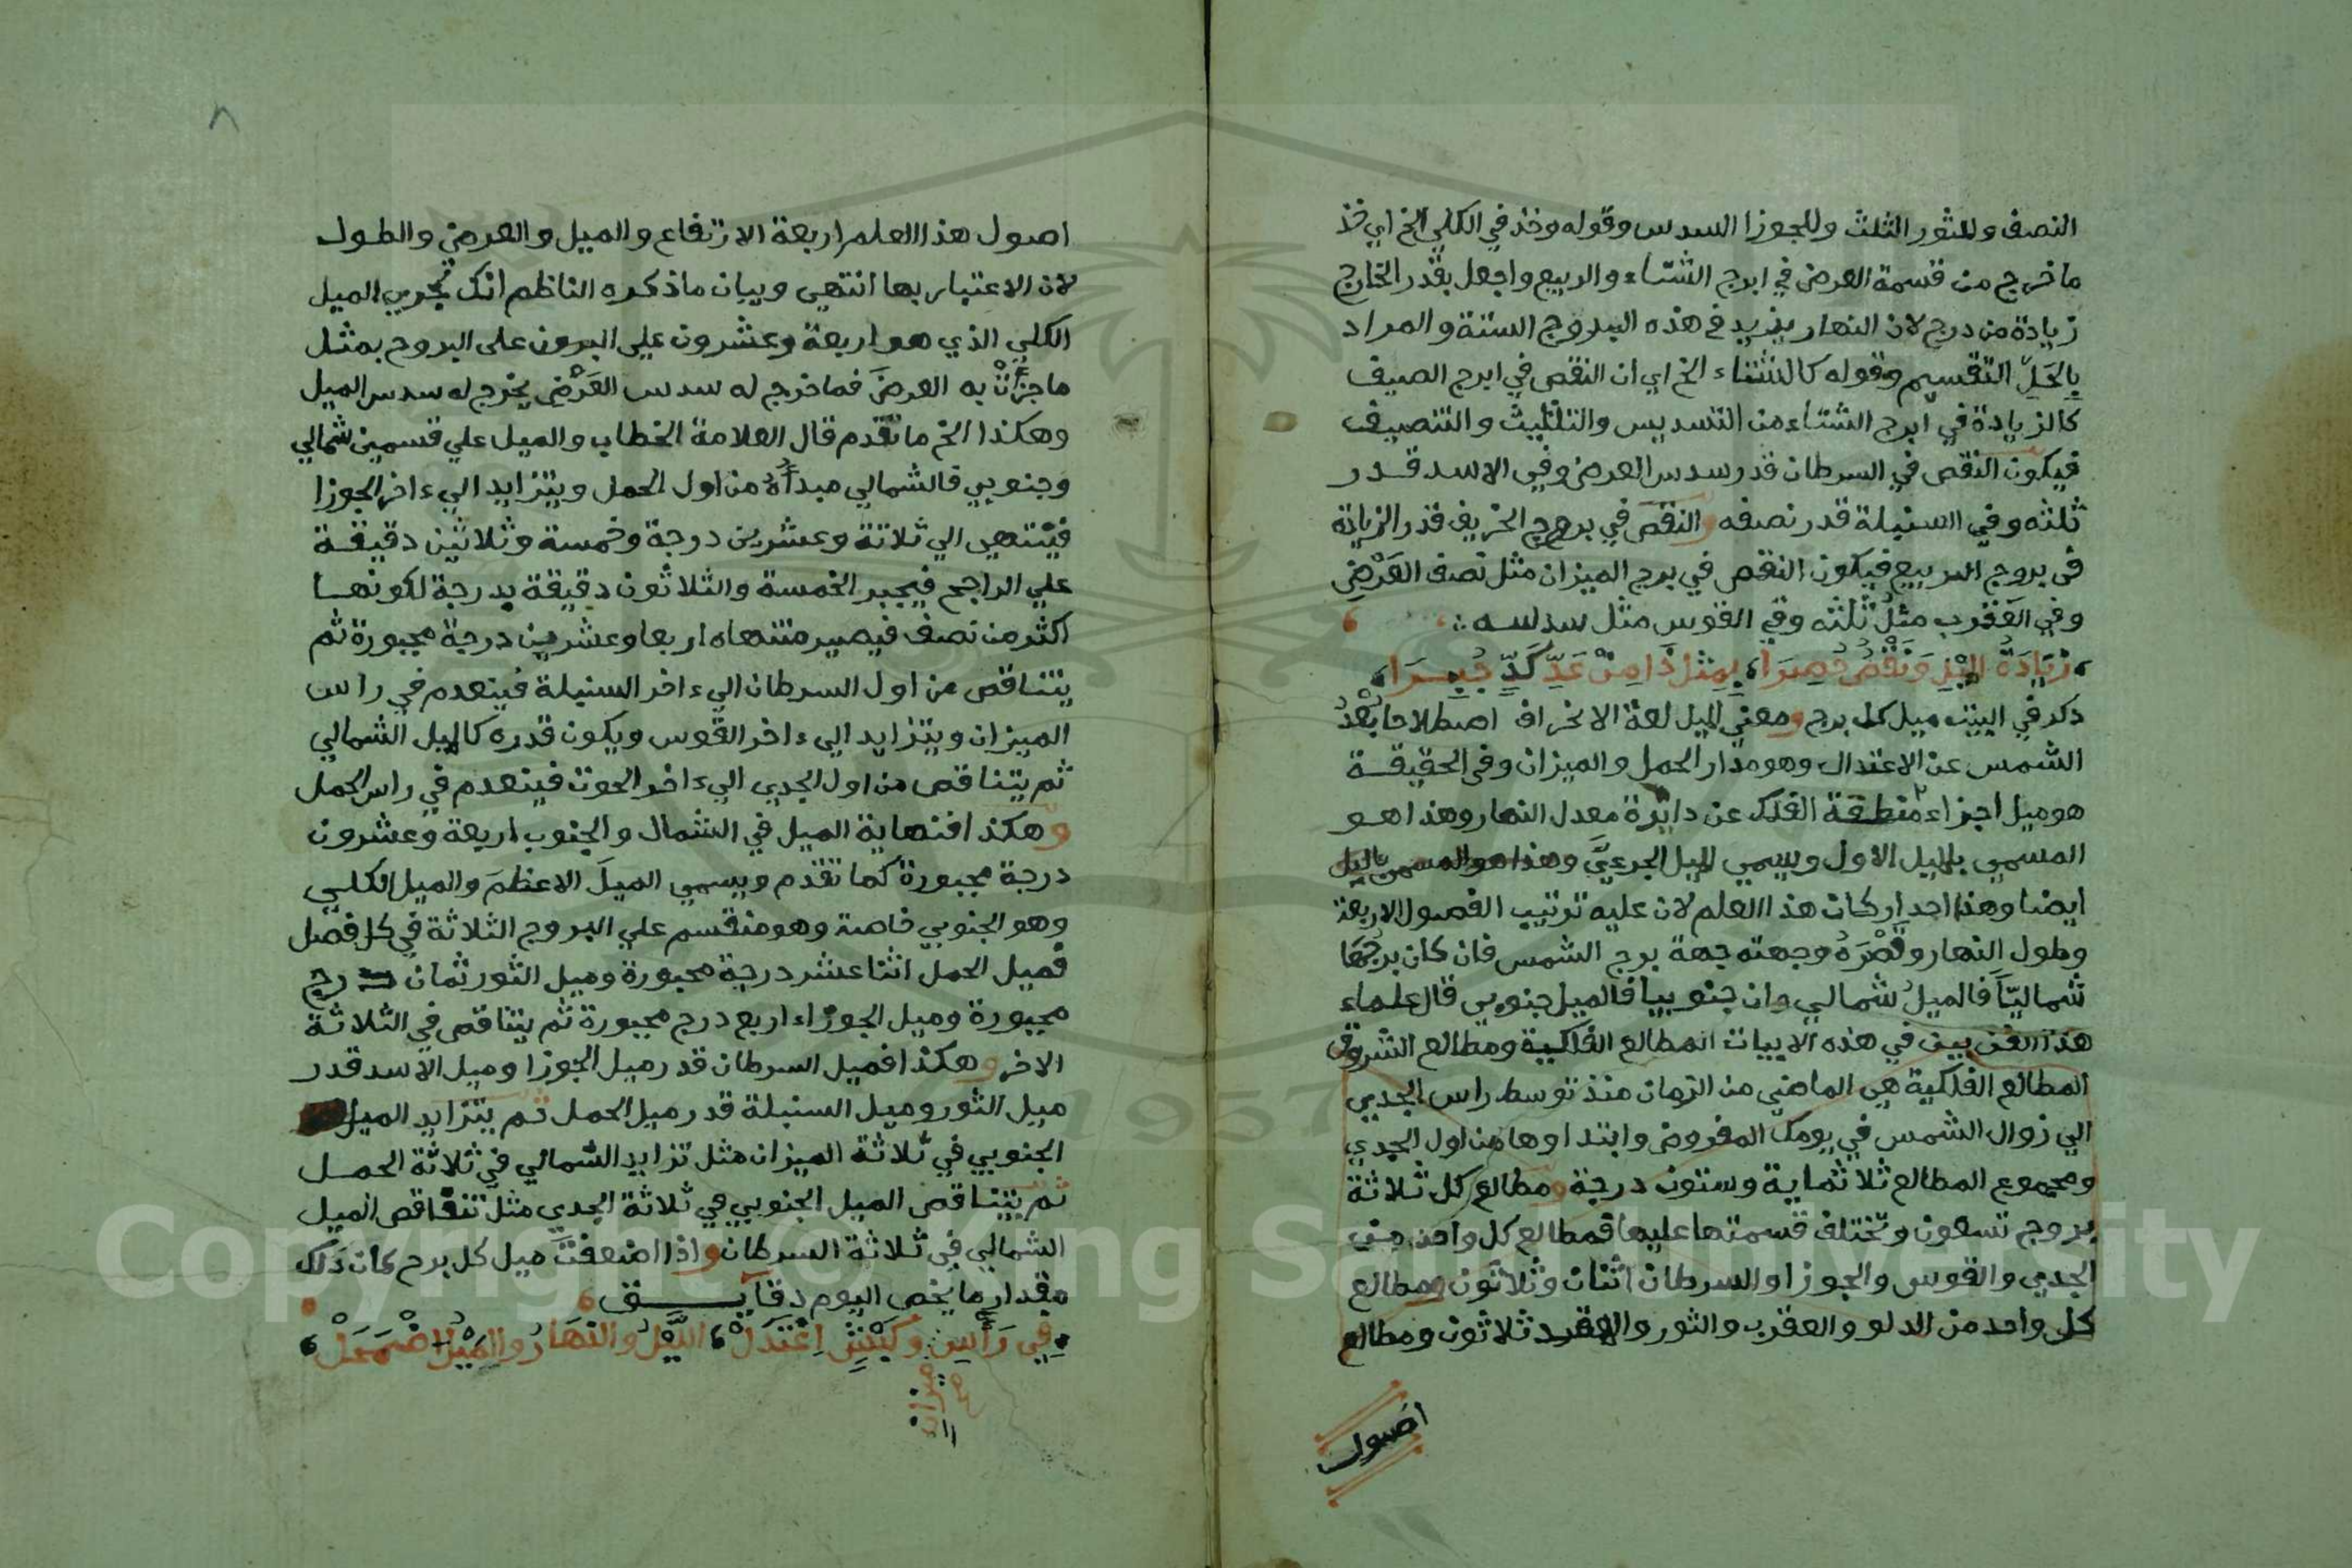 النصف وللثور الثلث وللجوزا السدس وقوله وخذ في الكلي الخ اي خذ
ما خرج من قسمة العرض في ابرج الشتاء والربيع واجعل بقدر الخارج
زيادة من درج لان النهار يزيد في هذه البروج الستة والمراد
بِالحَلِّ التقسيم وقوله كالشتاء الخ اي ان النقص في ابرج الصيف
كالزيادة في ابرج الشتاء من التسديس والتثليث والتنصيف
فيكون النقص في السرطان قدر سدس العرض وفي الاسد قدر
ثلثه وفي السنبلة قدر نصفه والنقص في بروج الخريف قدر الزيادة
في بروج الربيع فيكون النقص في برج الميزان مثل نصف العَرْضِ
وفي العقرب مثلُ ثُلثه وفي القوس مثل سدسه
زِيَادَةُ المَيْلِ وَنَقْصُ حُصِرَا بِمِثْلِ ذَا مِنْ عَدِّ كَدٍّ جُبِرَا
ذكر في البيت ميل كل برج ومعني الميل لغة الانحراف اصطلاحا بُعْدُ
الشمس عن الاعتدال وهو مدار الحمل والميزان وفي الحقيقة
هو ميل اجزاء منطقة الفلك عن دايرة معدل النهار وهذا هو
المسمي بالميل الاول ويسمي الميل الجزءيَّ وهذا هو المسمي بالميل
ايضا وهذا احد اركان هذا العلم لان عليه ترتيب الفصول الاربعة
وطول النهار وقصْرَهُ وجهته جهة برج الشمس فان كان برجُهَا
شماليّاً فالميلُ شمالي وان جنوبيا فالميل جنوبي قال علماء
هذا الفن بين في هذه الابيات المطالع الفلكية ومطالع الشروق
المطالع الفلكية هي الماضي من الزمان منذ توسط راس الجدي
الي زوال الشمس في يومك المفروض وابتداوها من اول الجدي
ومجموع المطالع ثلاثماية وستون درجة ومطالع كل ثلاثة
بروج تسعون وتختلف قسمتها عليها فمطالع كل واحد من
الجدي والقوس والجوزا والسرطان اثنان وثلاثون ومطالع
كل واحد من الدلو والعقرب والثور والاسد ثلاثون ومطالع
اصول
اصول هذا العلم اربعة الارتفاع والميل والعرض والطول
لان الاعتبار بها انتهي وبيان ما ذكره الناظم انك تجري الميل
الكلي الذي هو اربعة وعشرون علي البروج بمثل
ما جزأتَ به العرضَ فما خرج له سدس العَرْضِ يخرج له سدس الميل
وهكذا الخ ما تقدم قال العلامة الخطاب والميل علي قسمين شمالي
وجنوبي فالشمالي مبدأهُ من اول الحمل ويتزايد الي ءاخر الجوزا
فينتهي الي ثلاثة وعشرين درجة وخمسة وثلاثين دقيقة
علي الراجح فيجبر الخمسة والثلاثون دقيقة بدرجة لكونها
اكثر من نصف فيصير منتهاه اربعا وعشرين درجة مجبورة ثم
يتناقص من اول السرطان الي ءاخر السنبلة فينعدم في راس
الميزان ويتزايد الي ءاخر القوس ويكون قدره كالميل الشمالي
ثم يتناقص من اول الجدي الي ءاخر الحوت فينعدم في راس الحمل
وهكذا فنهاية الميل في الشمال والجنوب اربعة وعشرون
درجة مجبورة كما تقدم ويسمي الميلَ الاعظمَ والميل الكلي
وهو الجنوبي خاصة وهو منقسم علي البروج الثلاثة في كل فصل
فميل الحمل اثنا عشر درجة مجبورة وميل الثور ثمان درج
مجبورة وميل الجوزاء اربع درج مجبورة ثم يتناقص في الثلاثة
الاخر وهكذا فميل السرطان قدر ميل الجوزا وميل الاسد قدر
ميل الثور وميل السنبلة قدر ميل الحمل ثم يتزايد الميل
الجنوبي في ثلاثة الميزان مثل تزايد الشمالي في ثلاثة الحمل
ثم يتناقص الميل الجنوبي في ثلاثة الجدي مثل تناقص الميل
الشمالي في ثلاثة السرطان واذا اضعفت ميل كل برج كان ذلك
مقدار ما يخص اليوم دقايق
فِي رَأْسِ وَكَبْشٍ اِعْتَدَلْ اللَّيْلُ والنَهَارُ والمَيْلُ اضْمَحَلْ
ميزان